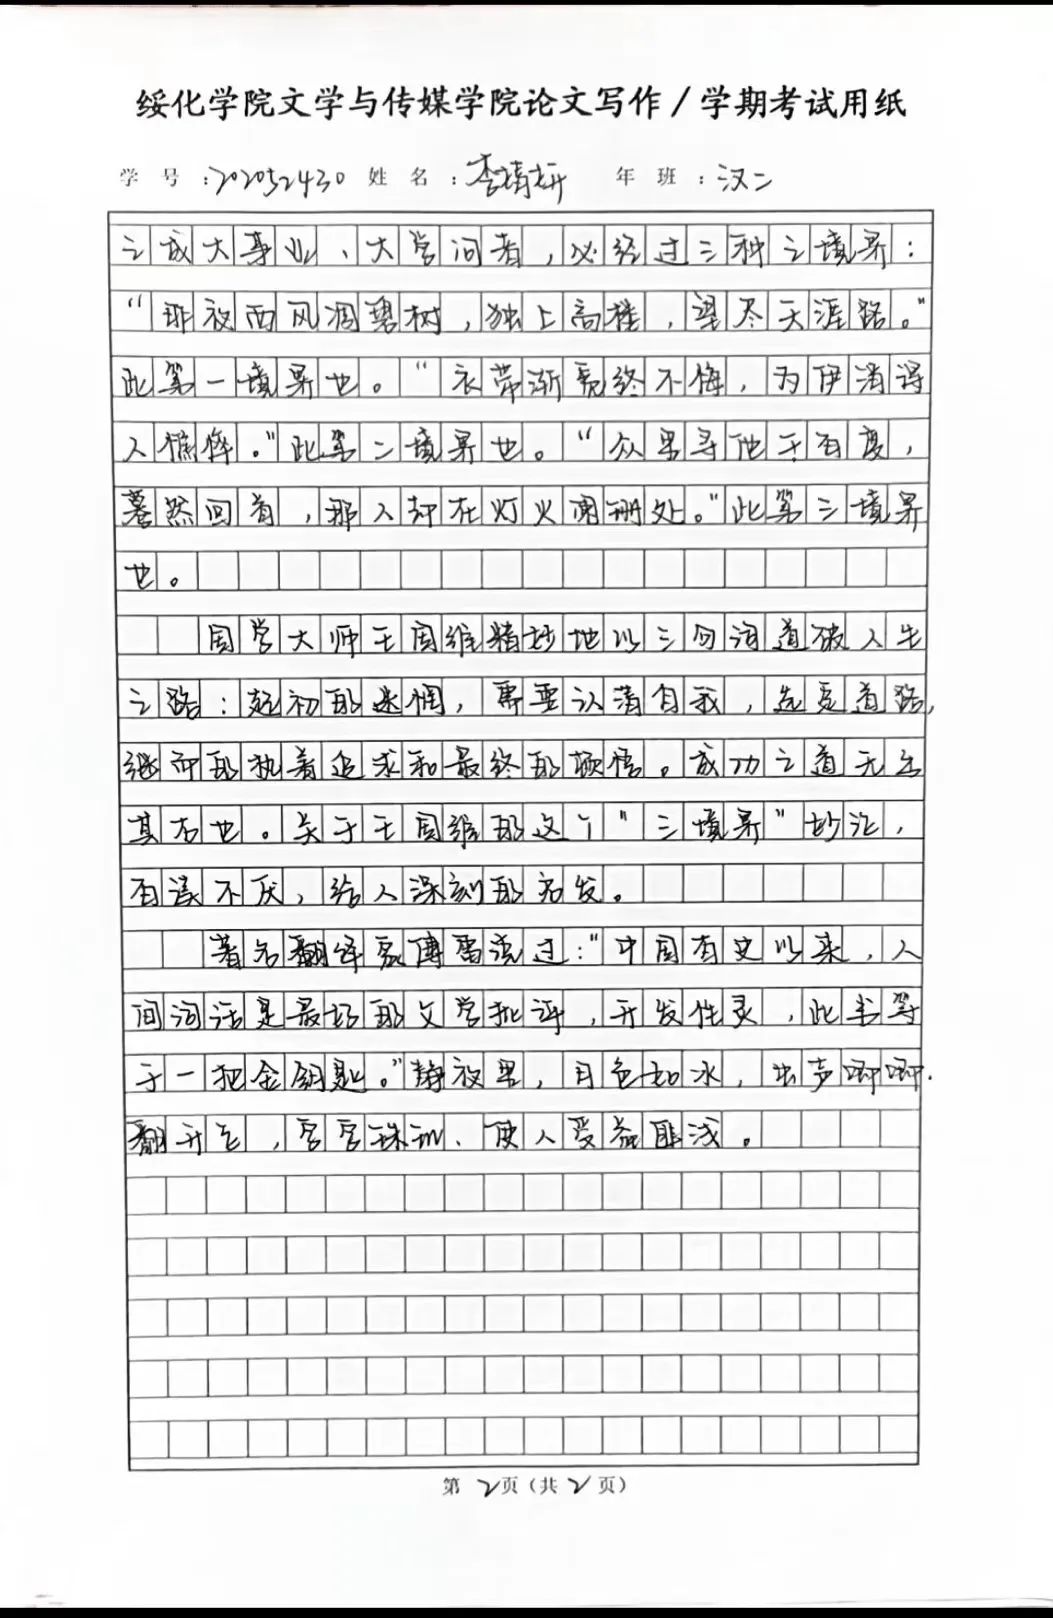 绥化学院文学与传媒学院论文写作/学期考试用纸
学 号 :202052430 姓 名 :李婧妍 年 班 :汉二
之成大事业、大学问者,必经过三种之境界:
“昨夜西风凋碧树,独上高楼,望尽天涯路。”
此第一境界也。“衣带渐宽终不悔,为伊消得
人憔悴。”此第二境界也。“众里寻他千百度,
蓦然回首,那人却在灯火阑珊处。”此第三境界
也。
国学大师王国维精妙地以三句词道破人生
之路:起初的迷惘,需要认清自我,选定道路,
继而的执着追求和最终的顿悟。成功之道无出
其右也。关于王国维的这个“三境界”妙论,
百读不厌,给人深刻的启发。
著名翻译家傅雷说过:“中国有史以来,人
间词话是最好的文学批评,开发性灵,此书等
于一把金钥匙。”静夜里,月色如水,虫声唧唧.
翻开它,字字珠玑、使人受益匪浅。
第 2页(共 2 页)